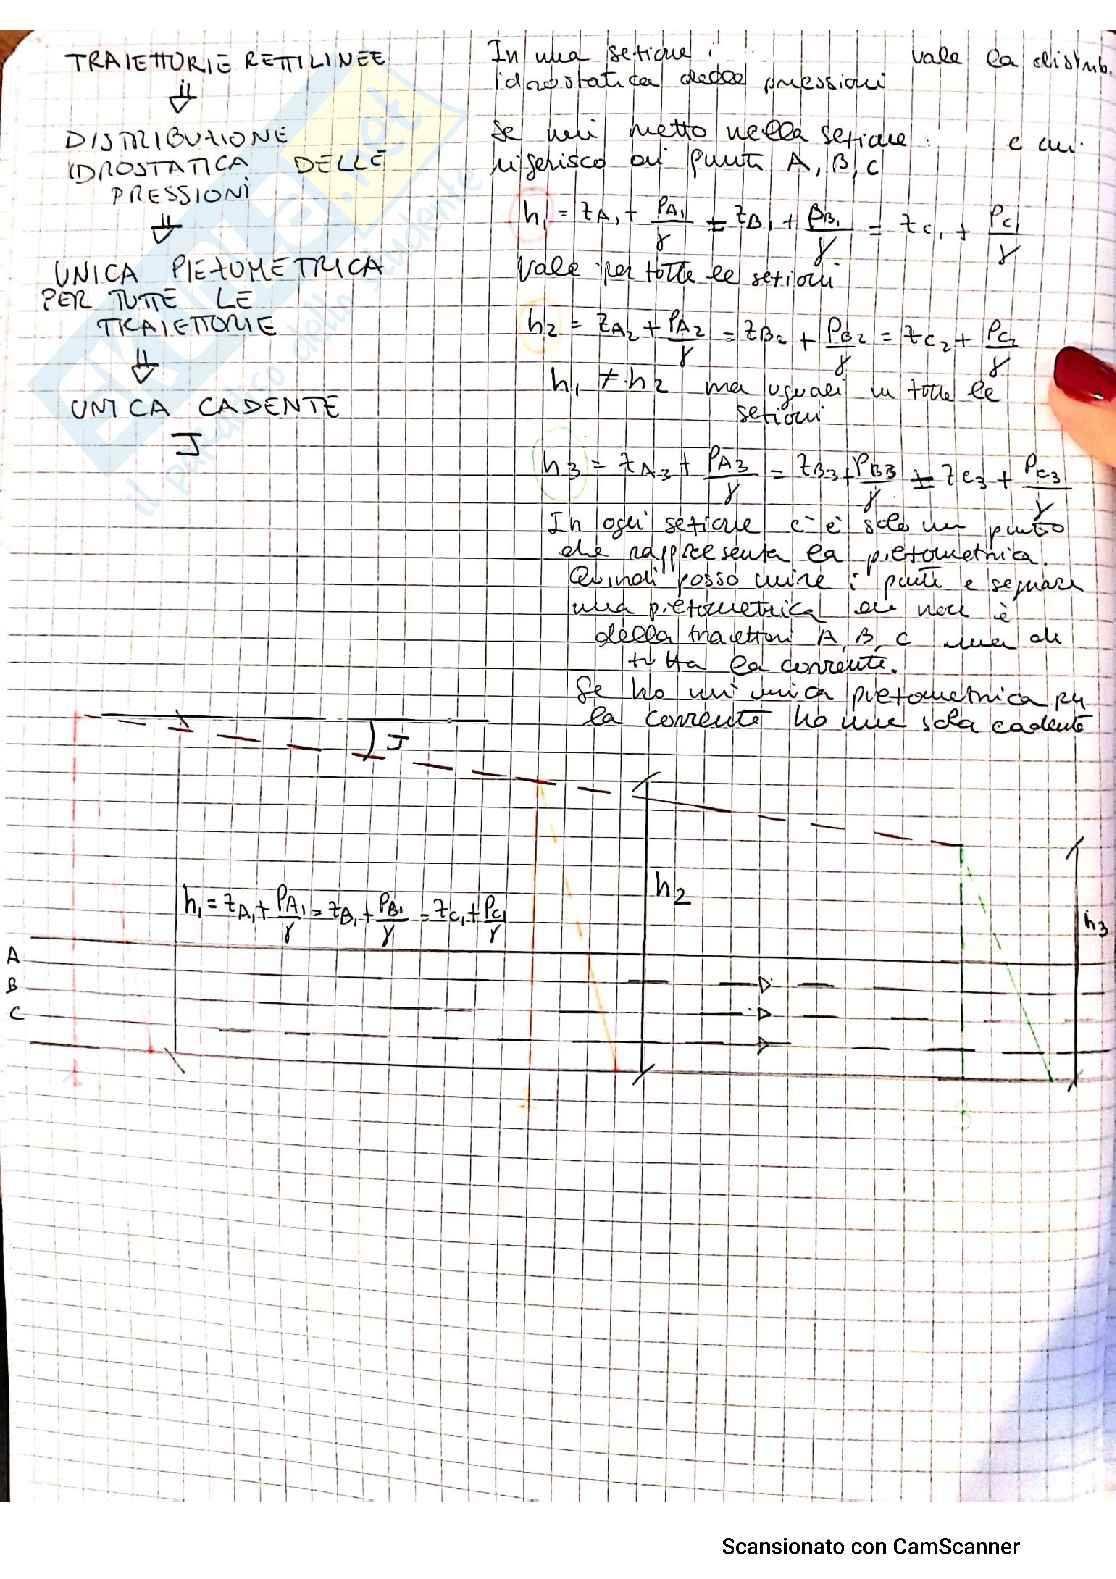 TRAIETTORIE RETTILINEE
⇓
DISTRIBUZIONE
IDROSTATICA DELLE
PRESSIONI
⇓
UNICA PIEZOMETRICA
PER TUTTE LE
TRAIETTORIE
⇓
UNICA CADENTE
J
In una sezione vale la distrib.
idrostatica delle pressioni
Se mi metto nella sezione e mi
riferisco ai punti A, B, C
h1 = zA1 + pA1/γ = zB1 + pB1/γ = zC1 + pC1/γ
Vale per tutte le sezioni
h2 = zA2 + pA2/γ = zB2 + pB2/γ = zC2 + pC2/γ
h1 ≠ h2 ma uguali in tutte le
sezioni
h3 = zA3 + pA3/γ = zB3 + pB3/γ = zC3 + pC3/γ
In ogni sezione c'è solo un punto
che rappresenta la piezometrica.
Quindi posso unire i punti e segnare
una piezometrica che non è
della traiettori A, B, C ma di
tutta la corrente.
Se ho un'unica piezometrica per
la corrente ho una sola cadente
J
h1 = zA1 + pA1/γ = zB1 + pB1/γ = zC1 + pC1/γ
h2
h3
A
B
C
Scansionato con CamScanner